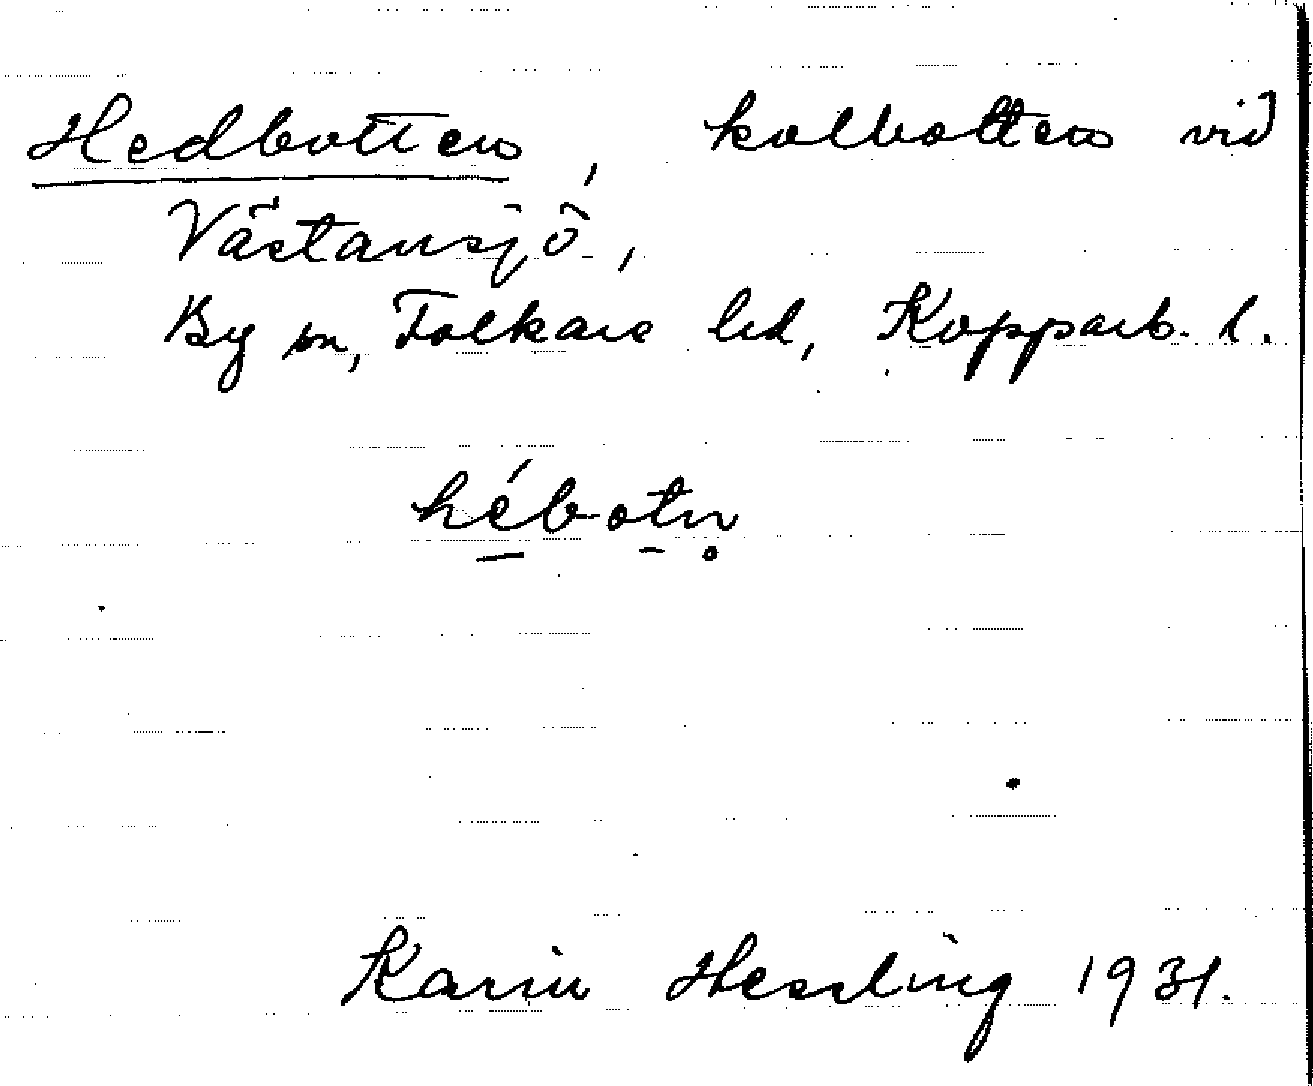 Hedbotten, kolbotten vid
Västansjö,
By sn, Folkare hd, Kopparb. l.
hébotn̥
Karin Hessling 1931.